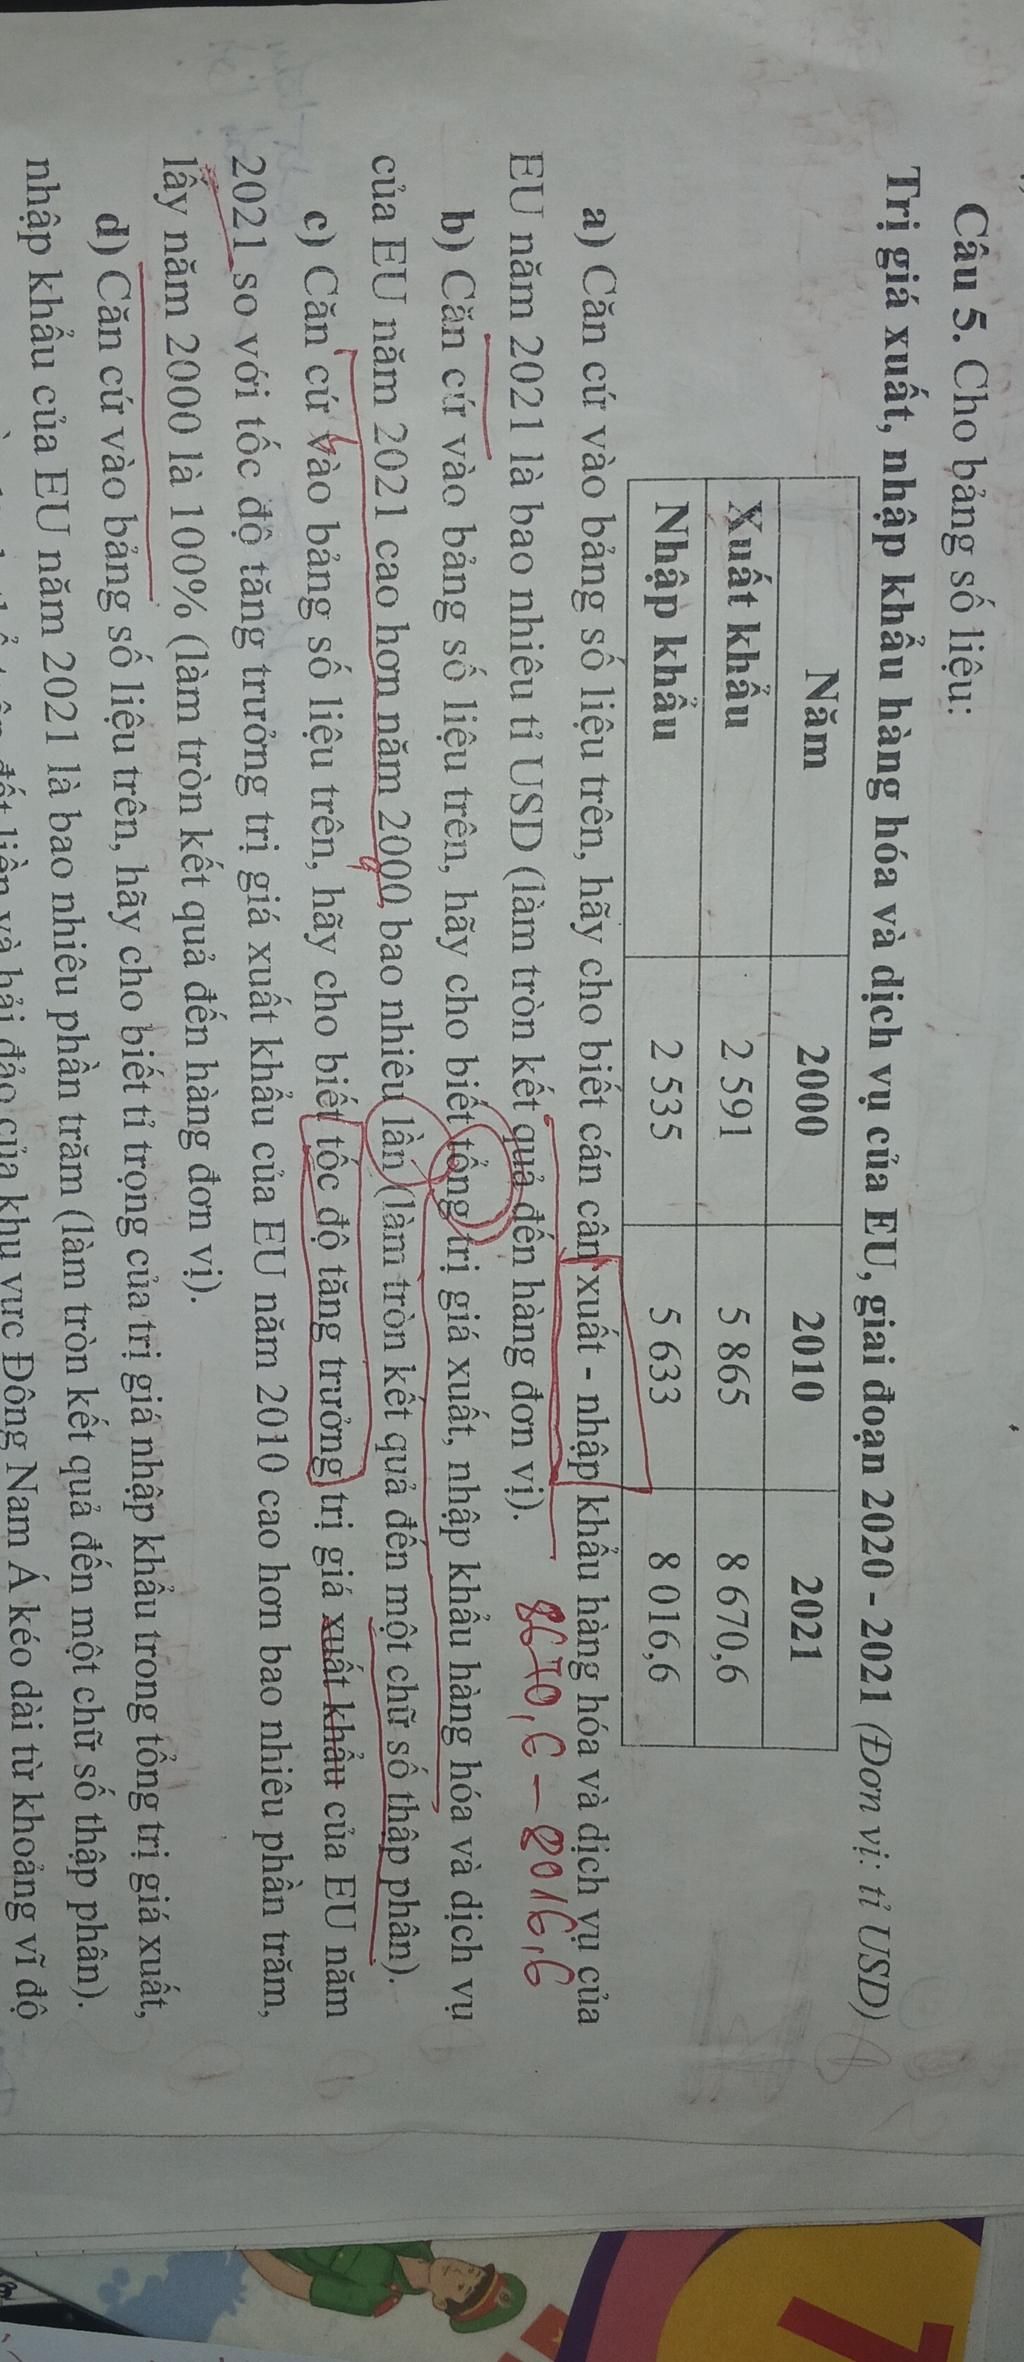 Câu 5. Cho bảng số liệu:
Trị giá xuất, nhập khẩu hàng hóa và dịch vụ của EU, giai đoạn 2020 - 2021 (Đơn vị: tỉ USD)
Năm 2000 2010 2021
Xuất khẩu 2 591 5 865 8 670,6
Nhập khẩu 2 535 5 633 8 016,6
a) Căn cứ vào bảng số liệu trên, hãy cho biết cán cân xuất - nhập khẩu hàng hóa và dịch vụ của
EU năm 2021 là bao nhiêu tỉ USD (làm tròn kết quả đến hàng đơn vị).
8670,6 - 8016,6
b) Căn cứ vào bảng số liệu trên, hãy cho biết tổng trị giá xuất, nhập khẩu hàng hóa và dịch vụ
của EU năm 2021 cao hơn năm 2000 bao nhiêu lần (làm tròn kết quả đến một chữ số thập phân).
c) Căn cứ vào bảng số liệu trên, hãy cho biết tốc độ tăng trưởng trị giá xuất khẩu của EU năm
2021 so với tốc độ tăng trưởng trị giá xuất khẩu của EU năm 2010 cao hơn bao nhiêu phần trăm,
lấy năm 2000 là 100% (làm tròn kết quả đến hàng đơn vị).
d) Căn cứ vào bảng số liệu trên, hãy cho biết tỉ trọng của trị giá nhập khẩu trong tổng trị giá xuất,
nhập khẩu của EU năm 2021 là bao nhiêu phần trăm (làm tròn kết quả đến một chữ số thập phân).
đất liền và hải đảo của khu vực Đông Nam Á kéo dài từ khoảng vĩ độ